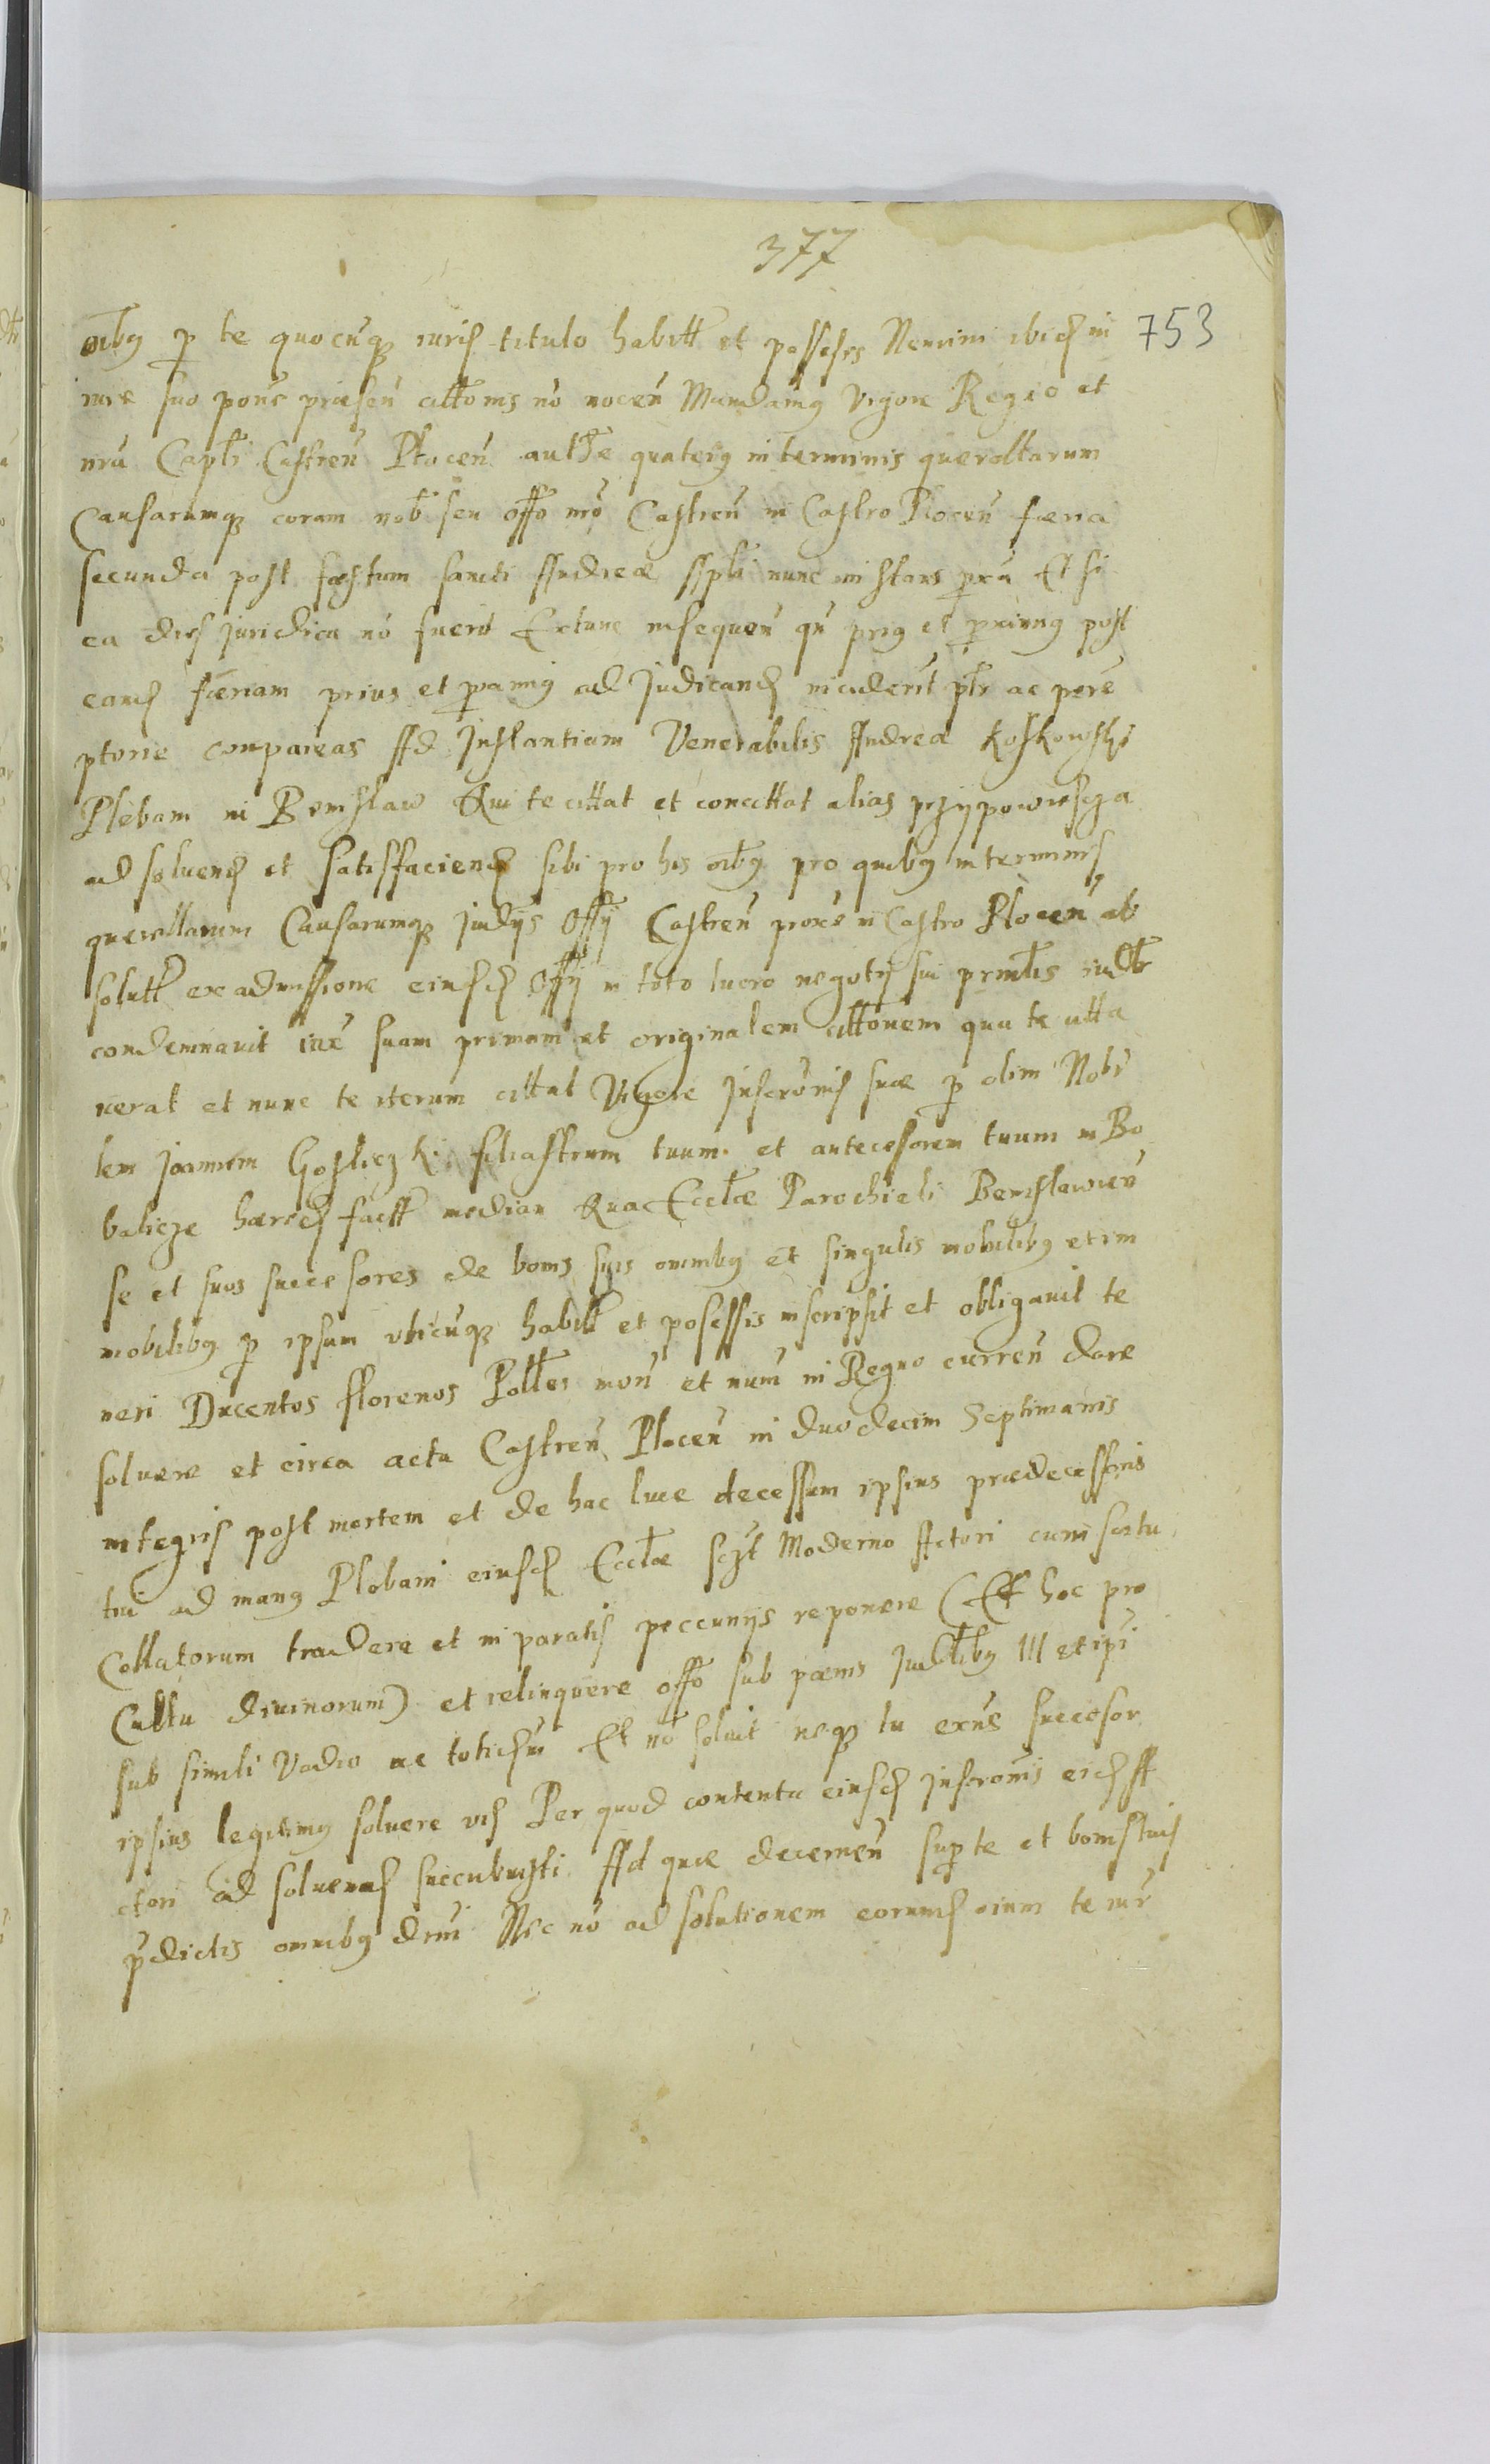 377
753
oibg p te quocuq iuris titulo habitt et possess Nemini ibid in
iure suo pons præsen cittonis nō nocen Mandamg vigore Regio et
nra Capli Castren Plocen autthe quateng in terminis querollarum
Causarumq coram nob seu offo nro Castren in Castro Plocen færia
secunda post fæstum sancti Andreæ Appli nunc instans pxa Et si
ea dies juridica nō fuerit Extunc insequen qn prig et pximg post
eand færiam prius et pximg ad judicand inciderit ptr ac pere
ptorie compareas Ad Instantiam Venerabilis Andreæ Koskowski
Plebani in Bemslaw Qui te cittat et concittat alias przypowiescza
ad soluend et satisfaciend sibi pro his oibg pro quibg in terminis
querellarum Causarumq judys Offy Castren proxe in Castro Plocen ab
solutt ex admissione eiusd Offy in toto lucro negoty sui prinlis iudtr
condemnauit iux suam primam et originalem cittonem qua te citta
uerat et nunc te iterum cittat Vigore Inscronis suæ p olim Nobi
lem joannem Gosliczki filiastrum tuum et antecesorem tuum in Bo
balicze hæred factt median Qua Ecclæ Parochiali Bemslawien
se et suos succesores de bonis suis omnibg et singulis mobilibg et im
mobilibg p ipsum vbicuq habitt et posessis inscripsit et obligauit te
neri Ducentos florenos Pollles mon et num in Regno curren dare
soluere et circa acta Castren Plocen in duodecim Septimanis
integris post mortem et de hac luce decessum ipsius prædecessoris
tui ad mang Plebani eiusd Ecclæ sczt Moderno Actori cum scitu
Collatorum tradere et in paratis peccunys reponere (Et hoc pro
Cultu diuinorum) et relinquere offo sub pœnis Iudlibg III et ipi
sub simili Vadio ac totidem Et nō soluit neq tu exns succesor
ipsius legitimg soluere vis Per quod contenta eiusd Inscronis eid A
ctori ad soluend succubuisti Ad quæ decernen sup te et bonis tuis
pdictis omnibg dmi Nec nō ad solutionem eorund oium te iur